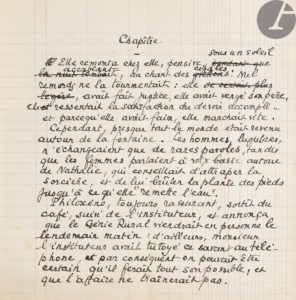 Chapitre.
sous un soleil
Elle remonta chez elle, pensive, pendant que
accablant cigales
la nuit tombait, au chant des grillons. Nul
remords ne la tourmentait : elle se sentait plus
légère, avait fait justice, elle avait vengé son père,
elle ressentait la satisfaction du devoir accompli -
et parcequ'elle avait faim, elle marchait vite.
Cependant, presque tout le monde était revenu
autour de la fontaine. Les hommes, lugubres,
n'échangeaient que de rares paroles, tandis
que les femmes parlaient à voix basse autour
de Nathalie, qui conseillait d'attraper la
sorcière, et de lui brûler la plante des pieds
jusqu'à ce qu'elle remette l'eau.
Philoxène, toujours rassurant, sortit du
café, suivi de l'instituteur, et annonça
que le Génie Rural viendrait en personne le
lendemain matin : d'ailleurs, monsieur
l'instituteur avait tutoyé ce savant au télé-
phone, et par conséquent on pouvait être
certain qu'il ferait tout son possible, et
que l'affaire ne traînerait pas.